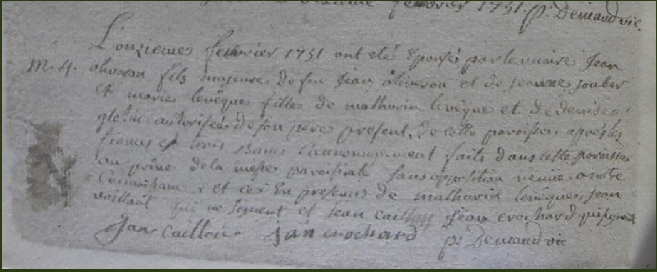 fevrier 1751. p. Demand vic.
L'onziemes fevrier 1751 ont etés Epousés par le vicaire Jean
M. 4. oliveron fils majeure de feu Jean oliveron et de Jeanne Jouber
Et maries levêque filles de mathurin levêque et de denise
autorisée de son pere present, de cette paroisse, apres les
fiances et trois Bans Canoniquement faits dans cette paroisse
au prône de la messe paroissiale sans opposition venue a notre
Connoissance, et ces En presens de mathurin levêque, Jean
vaillant qui ne signent et Jean Caillau Jean crochard qui signent
Jan Caillau Jan crochard p. Demand vic